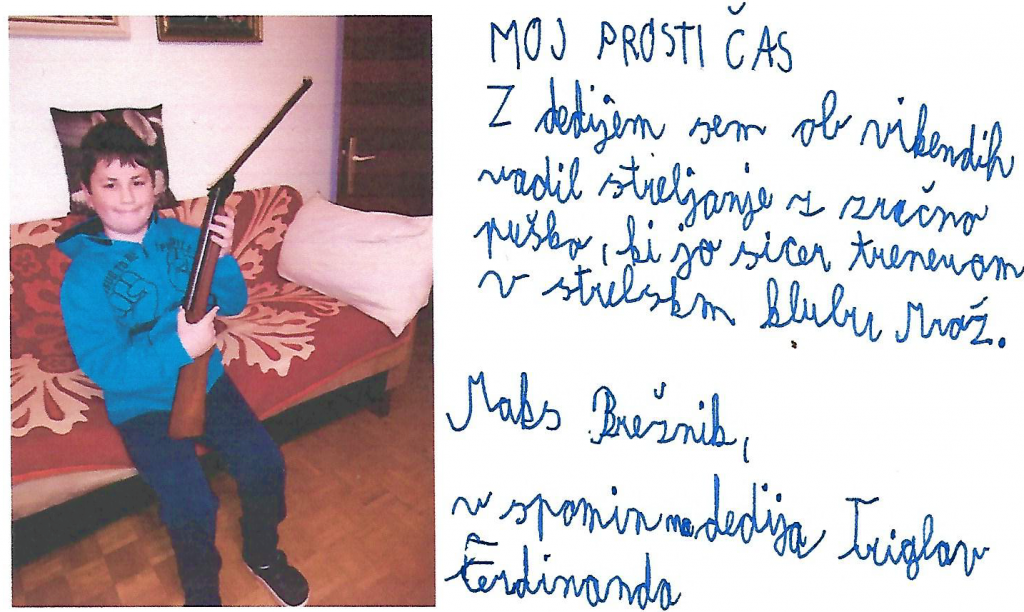 MOJ PROSTI ČAS
Z dedijem sem ob vikendih
vadil streljanje z zračno
puško, ki jo sicer treniram
v strelskm klubu Mrož.
Maks Brežnik,
v spomin na dedija Triglav
Ferdinanda